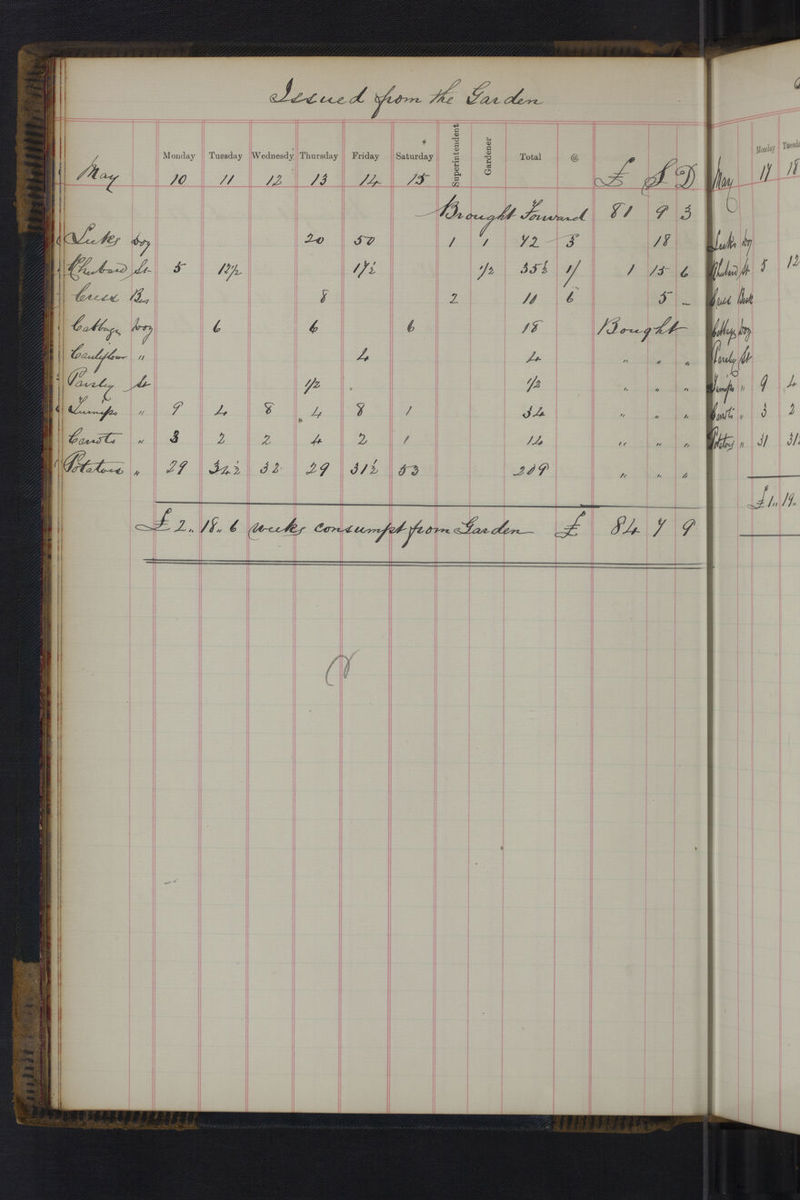 Issued from the Garden
Monday Tuesday Wednesdy Thursday Friday Saturday Superintendent Gardener Total @
May 10 11 12 13 14 15 £ S D
Brought Forward 81 9 3
Leeks Doz 20 50 1 1 72 3 18
Rhubarb St 5 12½ 17½ ½ 35½ 1/ 1 15 6
Cress Bas 8 2 10 6 5 -
Cabbage Doz 6 6 6 18 Bought
Cauliflower " 4 4 " " "
Parsley St ½ ½ " " "
Turnips " 9 4 8 4 8 1 34 " " "
Carrots " 3 2 2 4 2 1 14 " " "
Potatoes " 29 34½ 32 29 31½ 53 209 " " "
£2.. 18.. 6 weeks consumpt from Garden £ 84 7 9
Monday
May 17 18
Leeks Doz
Rhubarb St 5 12
Cress
Cabbage Doz
Parsley St
Turnips " 9 4
Carrots " 3 2
Potatoes " 31 31
£1.. 19.